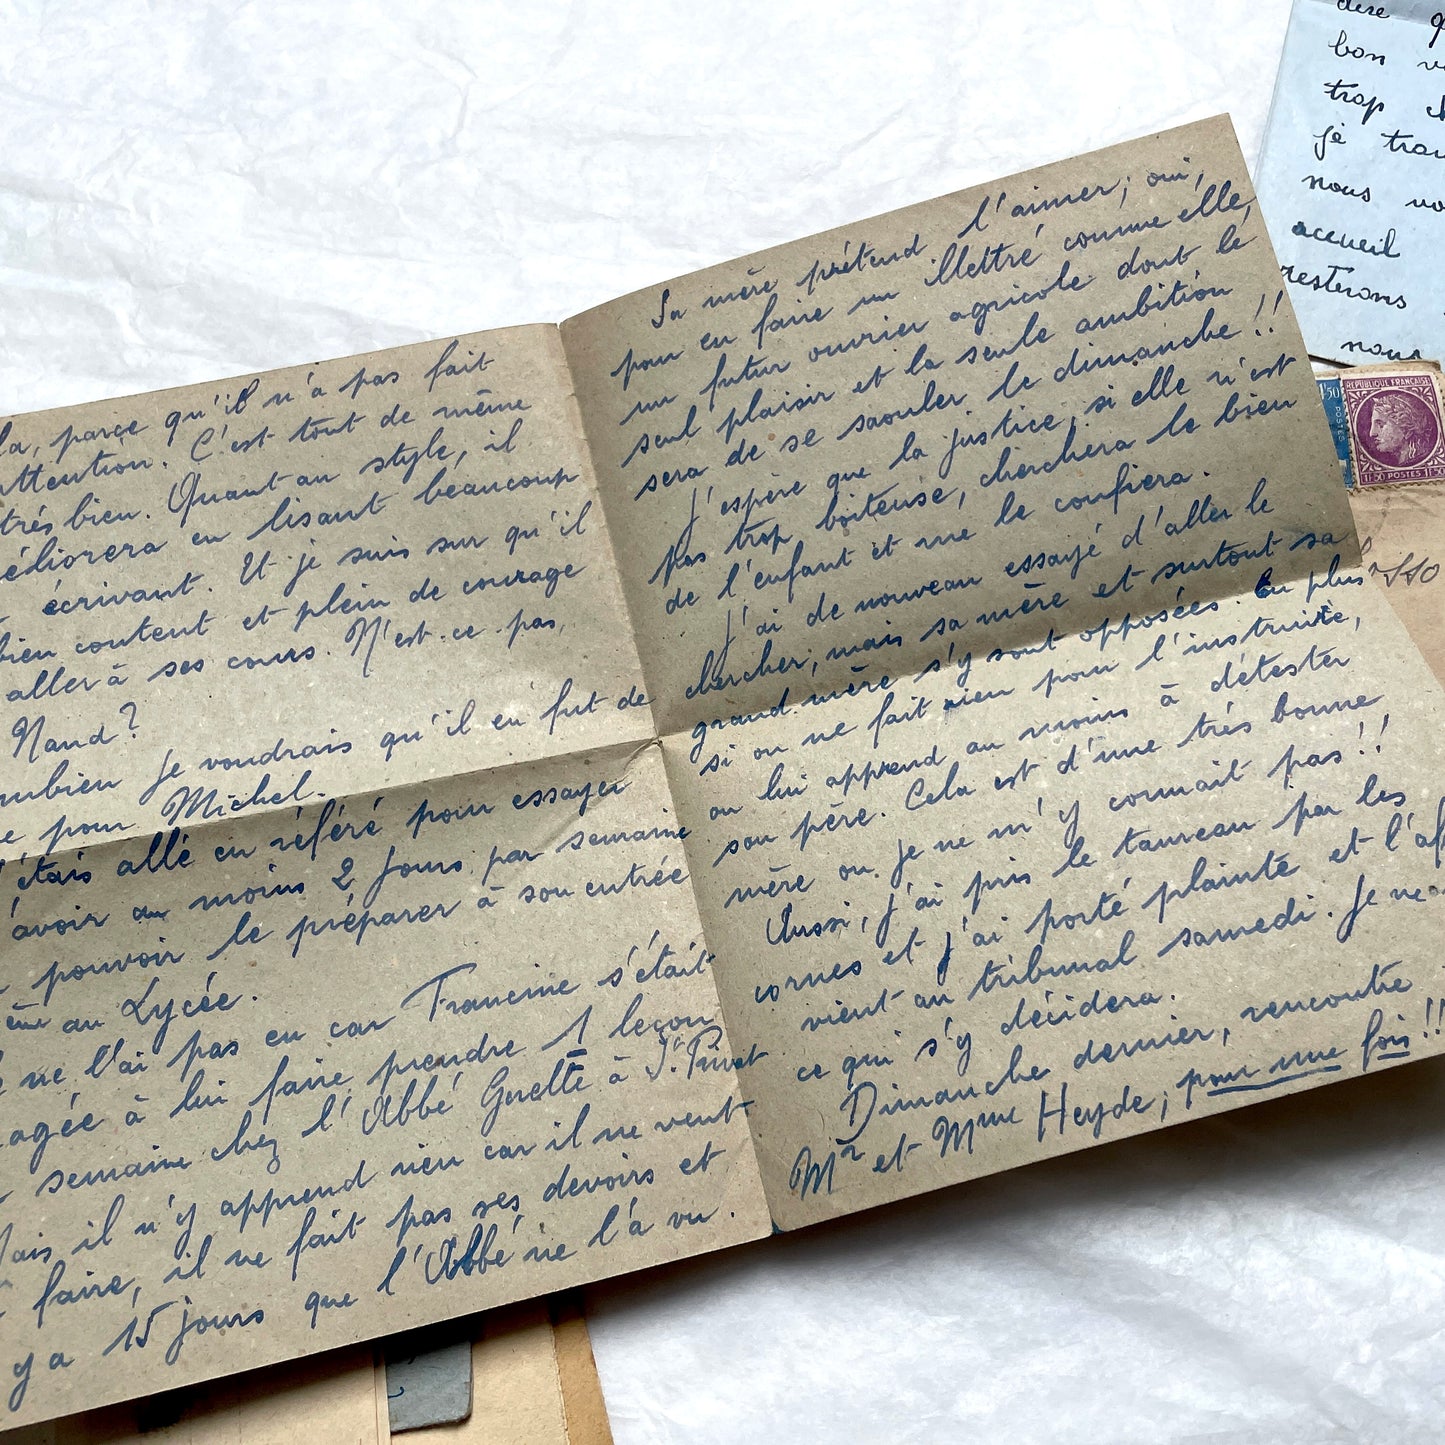 la, parce qu'il n'a pas fait
attention. C'est tout de même
très bien. Quant au style, il
améliorera en lisant beaucoup
écrivant. Et je suis sur qu'il
bien content et plein de courage
aller à ses cours. N'est-ce-pas,
Nand?
Combien je voudrais qu'il en fut de
pour Michel.
J'étais allé en référé pour essayer
d'avoir au moins 2 jours par semaine
pouvoir le préparer à son entrée
ème au Lycée.
ne l'ai pas eu car Francine s'était
engagée à lui faire prendre 1 leçon
semaine chez l'Abbé Guette à St. Privat
Mais il n'y apprend rien car il ne veut
faire, il ne fait pas ses devoirs et
y a 15 jours que l'Abbé ne l'a vu.
Sa mère prétend l'aimer; oui,
pour en faire un illettré comme elle,
un futur ouvrier agricole dont le
seul plaisir et la seule ambition
sera de se saouler le dimanche!!
J'espère que la justice, si elle n'est
pas trop boiteuse, cherchera le bien
de l'enfant et me le confiera.
J'ai de nouveau essayé d'aller le
chercher; mais sa mère et surtout sa
grand-mère s'y sont opposées. En plus
si on ne fait rien pour l'instruire,
on lui apprend au moins à détester
son père. Cela est d'une très bonne
mère ou je ne m'y connait pas!!
Aussi, j'ai pris le taureau par les
cornes et j'ai porté plainte et l'aff
vient au tribunal samedi. Je ne
ce qui s'y décidera.
Dimanche dernier, rencontre
Mr et Mme Heyde; pour une fois!!
dire q
bon v
trop
je trav
nous vo
accueil
resterons
nous
1,50
POSTES
REPUBLIQUE FRANÇAISE
1F50 POSTES 1F50